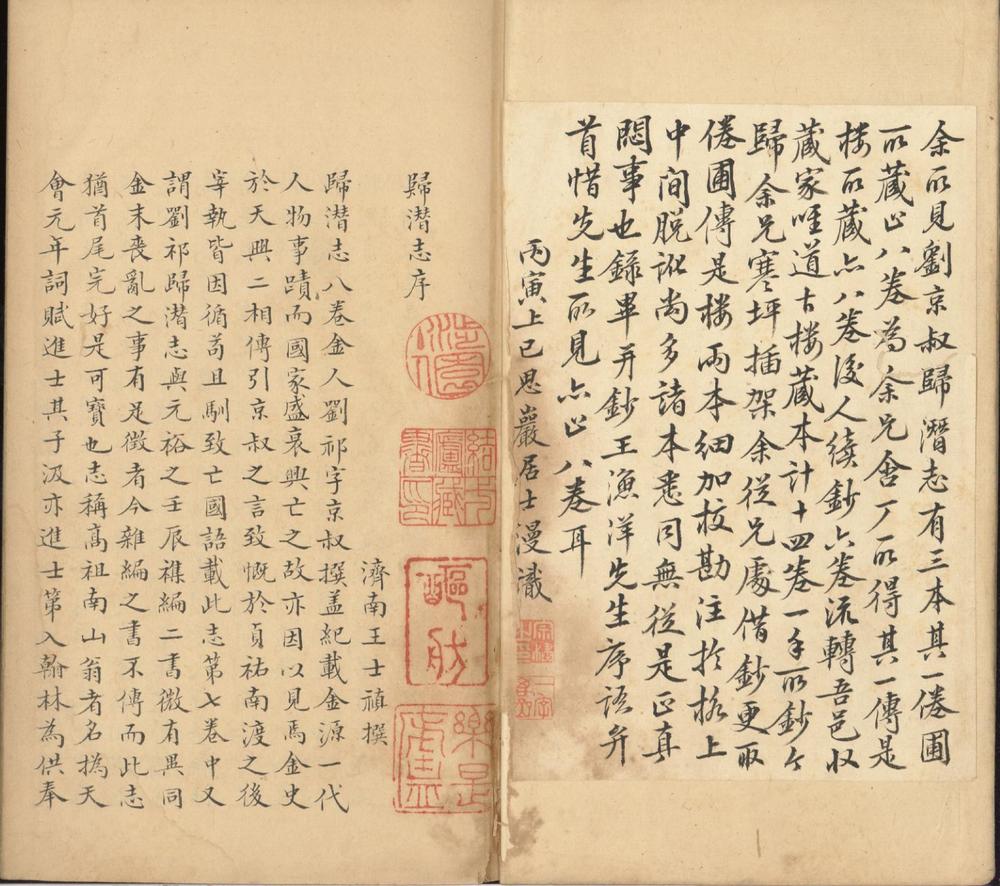 余所見劉京叔歸潛志有三本其一倦圃
所藏止八卷為余兄含厂所得其一傳是
樓所藏亦八卷後人續鈔六卷流轉吾邑收
藏家唯道古樓藏本計十四卷一手所鈔今
歸余兄寒坪插架余從兄處借鈔更取
倦圃傳是樓兩本細加校勘注於格上
中间脱訛尚多諸本悉同無從是正真
悶事也錄畢并鈔王漁洋先生序語弁
首惜先生所見亦止八卷耳
丙寅上巳思巖居士漫識
歸潛志序
濟南王士禛撰
歸潛志八卷金人劉祁字京叔撰盖紀載金源一代
人物事蹟而國家盛衰興亡之故亦因以見焉金史
於天興二相傳引京叔之言致慨於貞祐南渡之後
宰執皆因循苟且馴致亡國語載此志第七卷中又
謂劉祁歸潛志與元裕之壬辰襍編二書微有異同
金末喪亂之事有足徵者今雜編之書不傳而此志
猶首尾完好是可寶也志稱髙祖南山翁者名撝天
會元年詞賦進士其子汲亦進士第入翰林為供奉